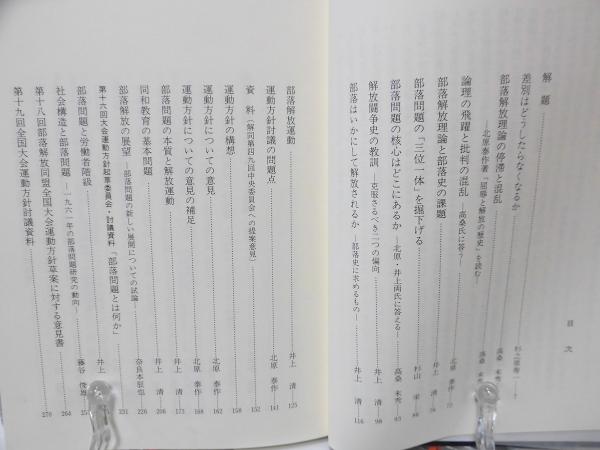 目次
解題
差別はどうしたらなくなるか
部落解放理論の停滞と混乱
—北原泰作著『屈辱と解放の歴史』を読む— 高桑末秀
論理の飛躍と批判の混乱 —高桑氏に答う— 北原泰作
部落解放理論と部落史の課題 井上清
部落問題の「三位一体」を掘下げる 杉山
部落問題の核心はどこにあるか —北原・井上両氏に答える— 高桑末秀 93
解放闘争史の教訓 —克服さるべき二つの偏向— 井上清 98
部落はいかにして解放されるか —部落史に求めるもの— 井上清 116
部落解放運動 井上清 125
運動方針討議の問題点 北原泰作 141
資料(解同第四九回中央委員会への提案意見) 152
運動方針の構想 158
運動方針についての意見 北原泰作 162
運動方針についての意見の補足 北原泰作 168
部落問題の本質と解放運動 井上清 173
同和教育の基本問題 井上清 206
部落解放の展望 —部落問題の新しい展開についての試論— 奈良本辰也 226
第十六回大会運動方針起草委員会・討議資料「部落問題とは何か」 231
部落問題と労働者階級 井上
社会構造と部落問題 —一九六一年の部落問題研究の動向— 藤谷俊雄 264
第十八回部落解放同盟全国大会運動方針草案に対する意見書 270
第十九回全国大会運動方針討議資料